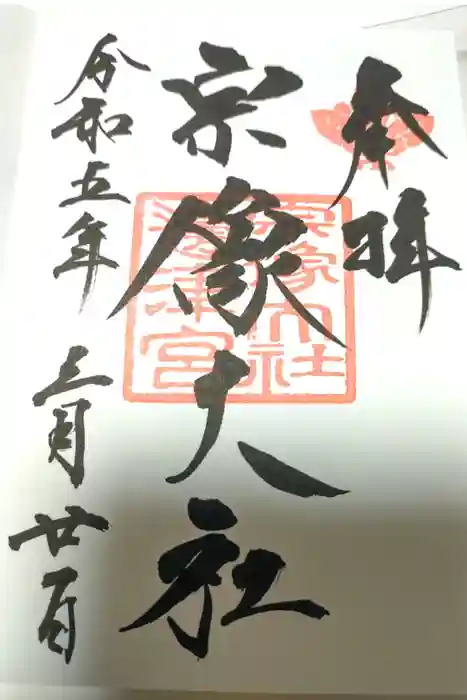 奉拝
宗像大社
宗像大社
邊津宮
令和五年三月廿一日